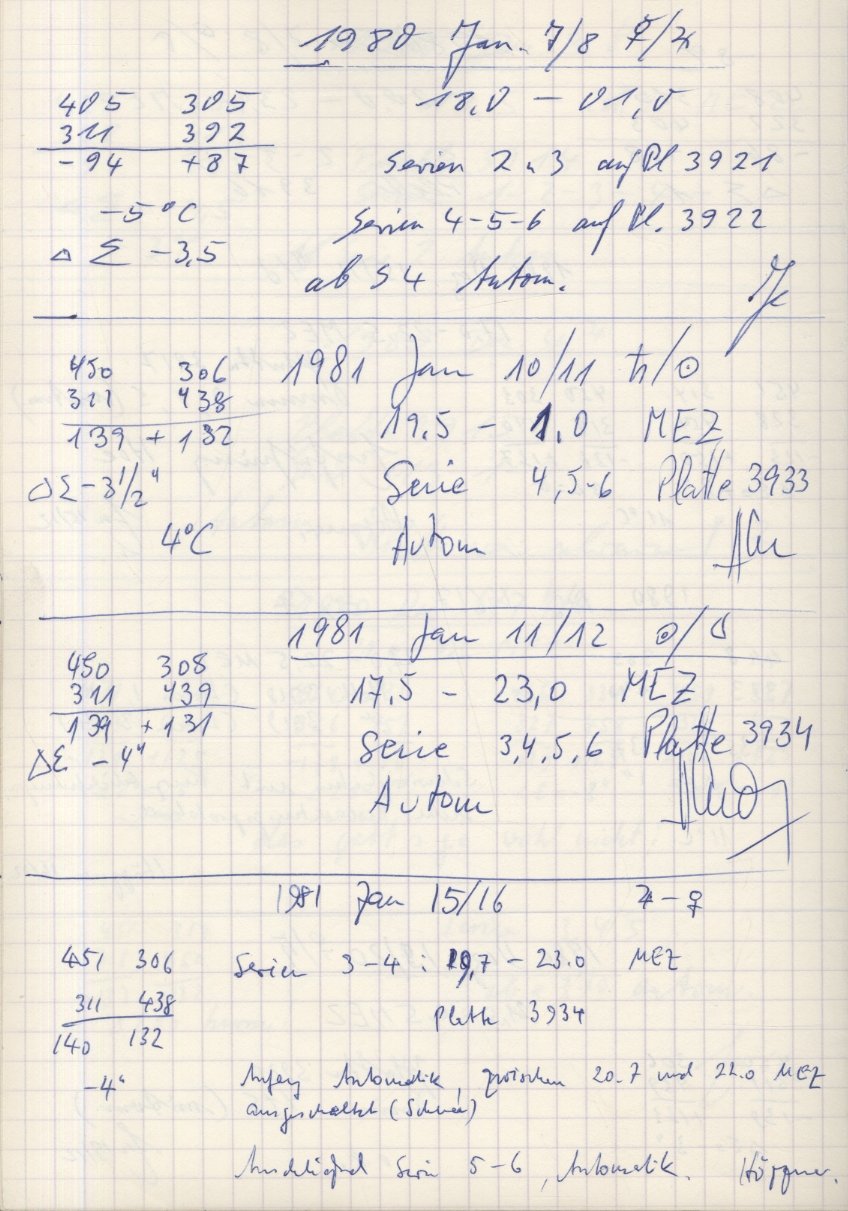 1980 Jan. 7/8 ☿/♃
405 305 18,0 – 01,0
311 392
-94 +87 Serien 2 u 3 auf Pl 3921
-5°C Serien 4-5-6 auf Pl. 3922
Δ Σ -3,5
ab S4 Autom.
450 306 1981 Jan 10/11 ♄/☉
311 438 19.5 – 1.0 MEZ
139 + 132
ΔΣ -3 1/2" Serie 4,5-6 Platte 3933
4°C Autom
1981 Jan 11/12 ☉/☾
450 308
311 439 17.5 – 23,0 MEZ
139 + 131
ΔΣ -4" Serie 3,4,5,6 Platte 3934
Autom
1981 Jan 15/16 ♃-♀
451 306 Serien 3-4: 19,7 – 23.0 MEZ
311 438 Platte 3934
140 132
-4" Anfang Automatik, zwischen 20.7 und 22.0 MEZ
ausgeschaltet (Schnee)
Anschließend Serie 5-6, Automatik. Höppner.